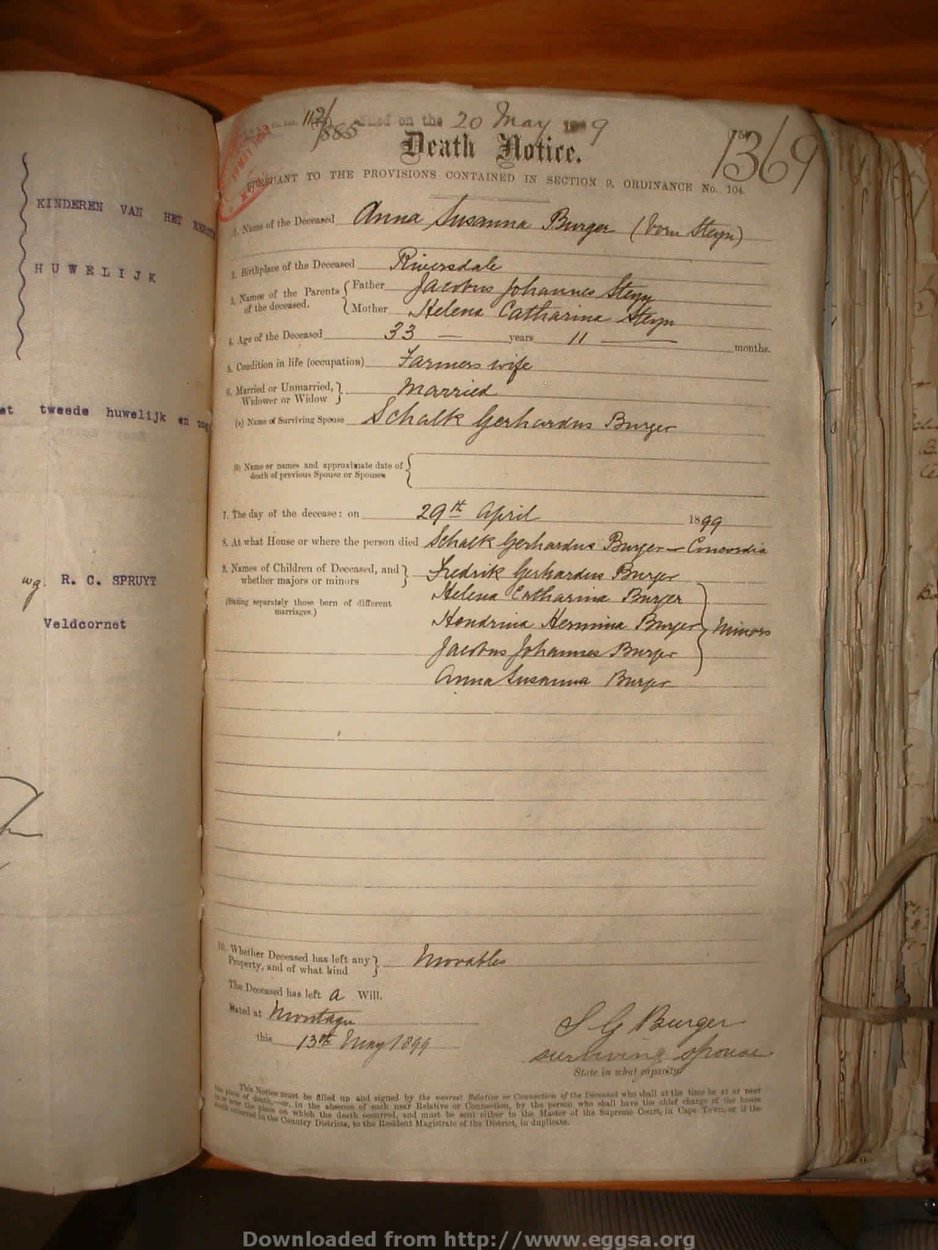 KINDEREN VAN HET
HUWELIJK
tweede huwelijk en
wg. R. C. SPRUYT
Veldcornet
Filed on the 20 May 1899
Death Notice.
1369
PURSUANT TO THE PROVISIONS CONTAINED IN SECTION 9, ORDINANCE No. 104.
1. Name of the Deceased Anna Susanna Burger (born Steyn)
2. Birthplace of the Deceased Riversdale
3. Names of the Parents of the deceased. { Father Jacobus Johannes Steyn
Mother Helena Catharina Steyn
4. Age of the Deceased 33 — years 11 — months.
5. Condition in life (occupation) Farmers wife
6. Married or Unmarried, Widower or Widow } Married
(a) Name of Surviving Spouse Schalk Gerhardus Burger
(b) Name or names and approximate date of death of previous Spouse or Spouses {
7. The day of the decease: on 29th April 1899
8. At what House or where the person died Schalk Gerhardus Burger – Concordia
9. Names of Children of Deceased, and whether majors or minors } Fredrik Gerhardus Burger
(Stating separately those born of different marriages.)
Helena Catharina Burger
Hendrina Hermina Burger
Minors
Jacobus Johannes Burger
Anna Susanna Burger
10. Whether Deceased has left any Property, and of what kind } Movables
The Deceased has left a Will.
Dated at Montagu
this 13th May 1899
S G Burger
surviving spouse
State in what capacity
This Notice must be filled up and signed by the nearest Relative or Connection of the Deceased who shall at the time be at or near
the place of death,—or, in the absence of such near Relative or Connection, by the person who shall have the chief charge of the house
in or the place on which the death occurred, and must be sent either to the Master of the Supreme Court, in Cape Town, or if the
death occurred in the Country Districts, to the Resident Magistrate of the District, in duplicate.
Downloaded from http://www.eggsa.org